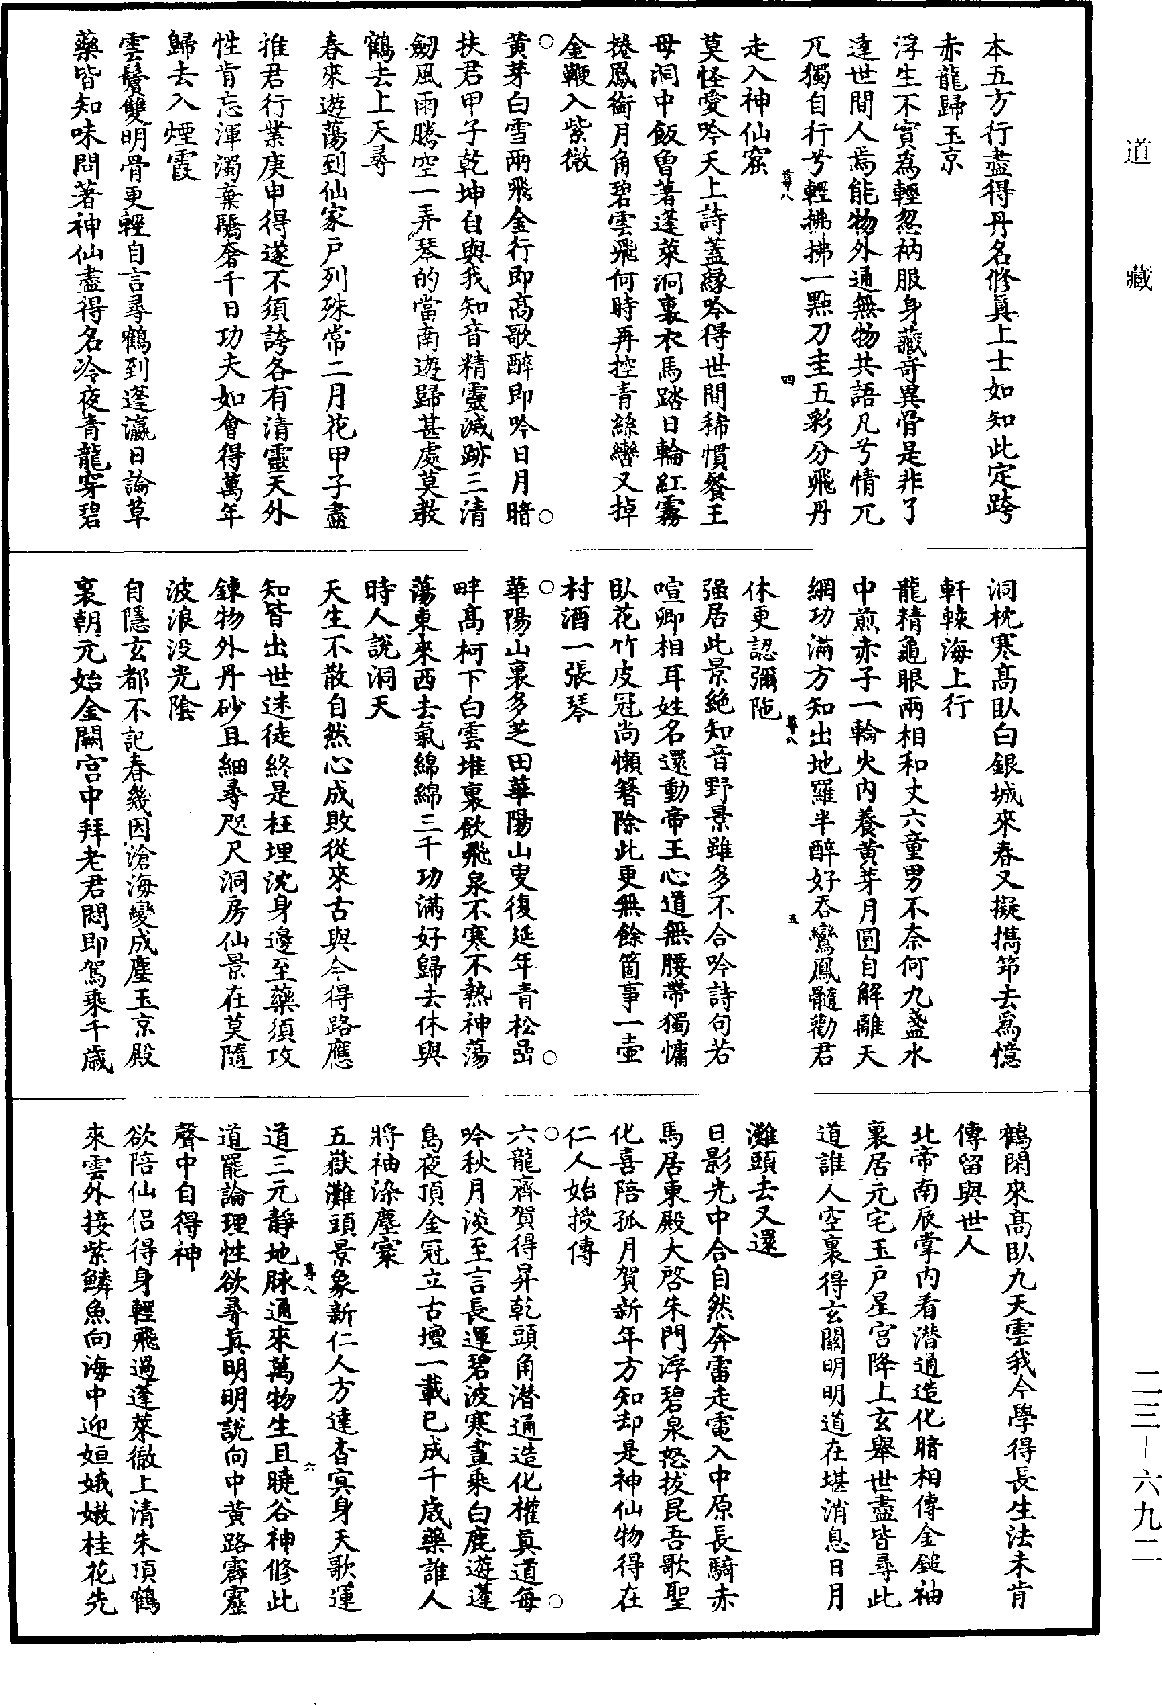 道藏
本五方行盡得丹名修真上士如知此定跨
赤龍歸玉京
浮生不實為輕忽衲服身藏奇異骨是非了
達世間人焉能物外通無物共語凡兮情兀
兀獨自行兮輕拂拂一點刀圭五彩分飛丹
走入神仙窟
尊八
四
莫怪愛吟天上詩蓋緣吟得世間稀慣餐王
母洞中飯曾著蓬萊洞裏衣馬踏日輪紅霧
捲鳳銜月角碧雲飛何時再控青絲轡又掉
金鞭入紫微
○黃芽白雪兩飛金行即高歌醉即吟日月暗○
扶君甲子乾坤自與我知音精靈滅跡三清
劒風雨騰空一弄琴的當南遊歸甚處莫教
鶴去上天尋
春來遊蕩到仙家戶列殊常二月花甲子盡
推君行業庚申得遂不須誇各有清靈天外
性肯忘渾濁棄驕奢千日功夫如會得萬年
歸去入煙霞
雲鬢雙明骨更輕自言尋鶴到蓬瀛日論草
藥皆知味問著神仙盡得名冷夜青龍穿碧
洞枕寒高臥白銀城來春又擬攜筇去爲憶
軒轅海上行
龍精龜眼兩相和丈六童男不奈何九盞水
中煎赤子一輪火內養黃芽月圓自解離天
網功滿方知出地羅半醉好吞鸞鳳髓勸君
休更認彌陁
尊八
五
强居此景絕知音野景雖多不合吟詩句若
喧卿相耳姓名還動帝王心道無腰帶獨慵
臥花竹皮冠尚懶簪除此更無餘箇事一壺
村酒一張琴
○華陽山裏多芝田華陽山叟復延年青松嵒○
畔高柯下白雲堆裏飲飛泉不寒不熱神蕩
蕩東來西去氣綿綿三千功滿好歸去休與
時人說洞天
天生不散自然心成敗從來古與今得路應
知皆出世迷徒終是枉埋沈身邊至藥須攻
鍊物外丹砂且細尋咫尺洞房仙景在莫隨
波浪没光陰
自隱玄都不記春幾因滄海變成塵玉京殿
裏朝元始金闕宮中拜老君悶即駕乘千歲
鶴閑來高臥九天雲我今學得長生法未肯
傳留與世人
北帝南辰掌內看潛通造化暗相傳金鎚袖
裏居元宅玉戶星宮降上玄舉世盡皆尋此
道誰人空裏得玄關明明道在堪消息日月
灘頭去又還
日影光中合自然奔雷走電入中原長騎赤
馬居東殿大啓朱門浮碧泉怒拔昆吾歌聖
化喜陪孤月賀新年方知却是神仙物得在
仁人始授傳
○六龍齊賀得昇乾頭角潛通造化權真道每○
吟秋月淡至言長運碧波寒晝乘白鹿遊蓬
島夜頂金冠立古壇一載已成千歲藥誰人
將袖染塵寰
五嶽灘頭景象新仁人方達杳冥身天歌運
道三元靜地脉通來萬物生且曉谷神修此
尊八
六
道罷論理性欲尋真明明說向中黃路霹靂
聲中自得神
欲陪仙侶得身輕飛過蓬萊徹上清朱頂鶴
來雲外接紫鱗魚向海中迎姮娥嫩桂花先
二三－六九二